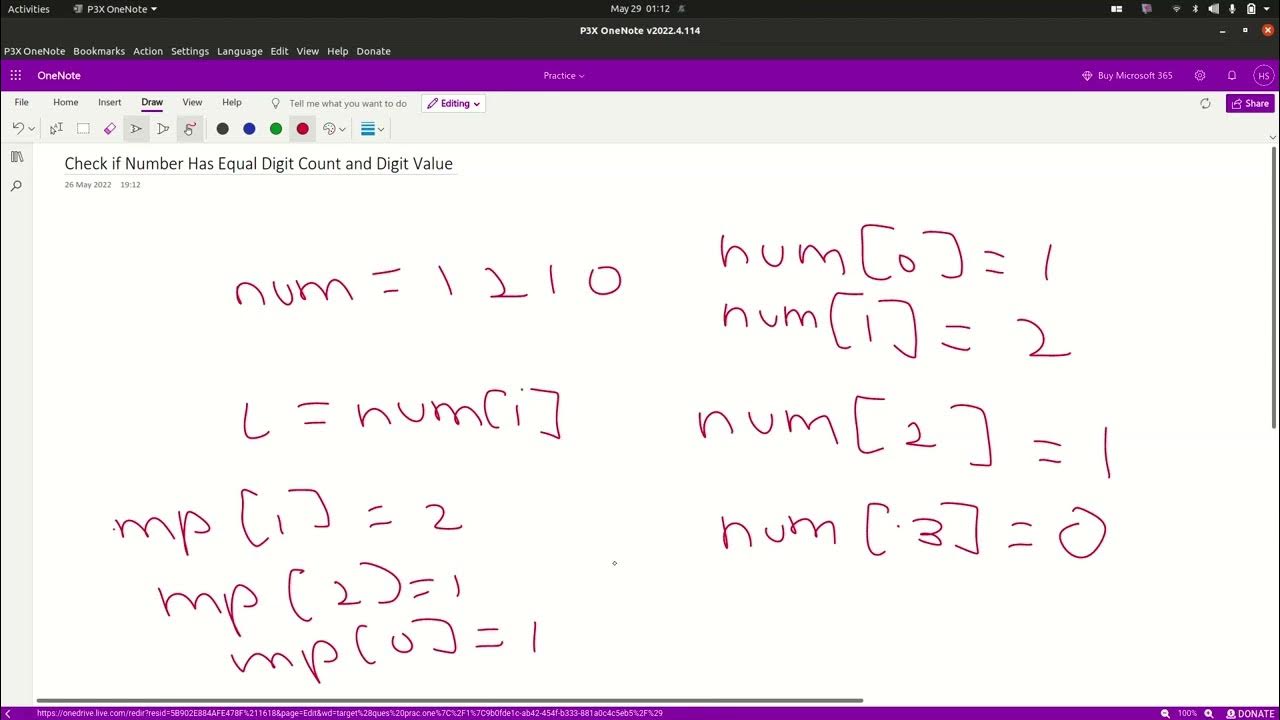 Activities P3X OneNote May 29 01:12
P3X OneNote v2022.4.114
P3X OneNote Bookmarks Action Settings Language Edit View Help Donate
OneNote Practice Buy Microsoft 365 HS
File Home Insert Draw View Help Tell me what you want to do Editing Share
Check if Number Has Equal Digit Count and Digit Value
26 May 2022 19:12
num = 1 2 1 0
i = num[i]
mp [1] = 2
mp (2) = 1
mp (0] = 1
num [0] = 1
num [1] = 2
num [2] = 1
num [3] = 0
https://onedrive.live.com/redir?resid=5B902E884AFE478F%211618&page=Edit&wd=target%28ques%20prac.one%7C%2F1%7C9b0fde1c-ab42-454f-b333-881a0c4c5eb5%2F%29 100% DONATE